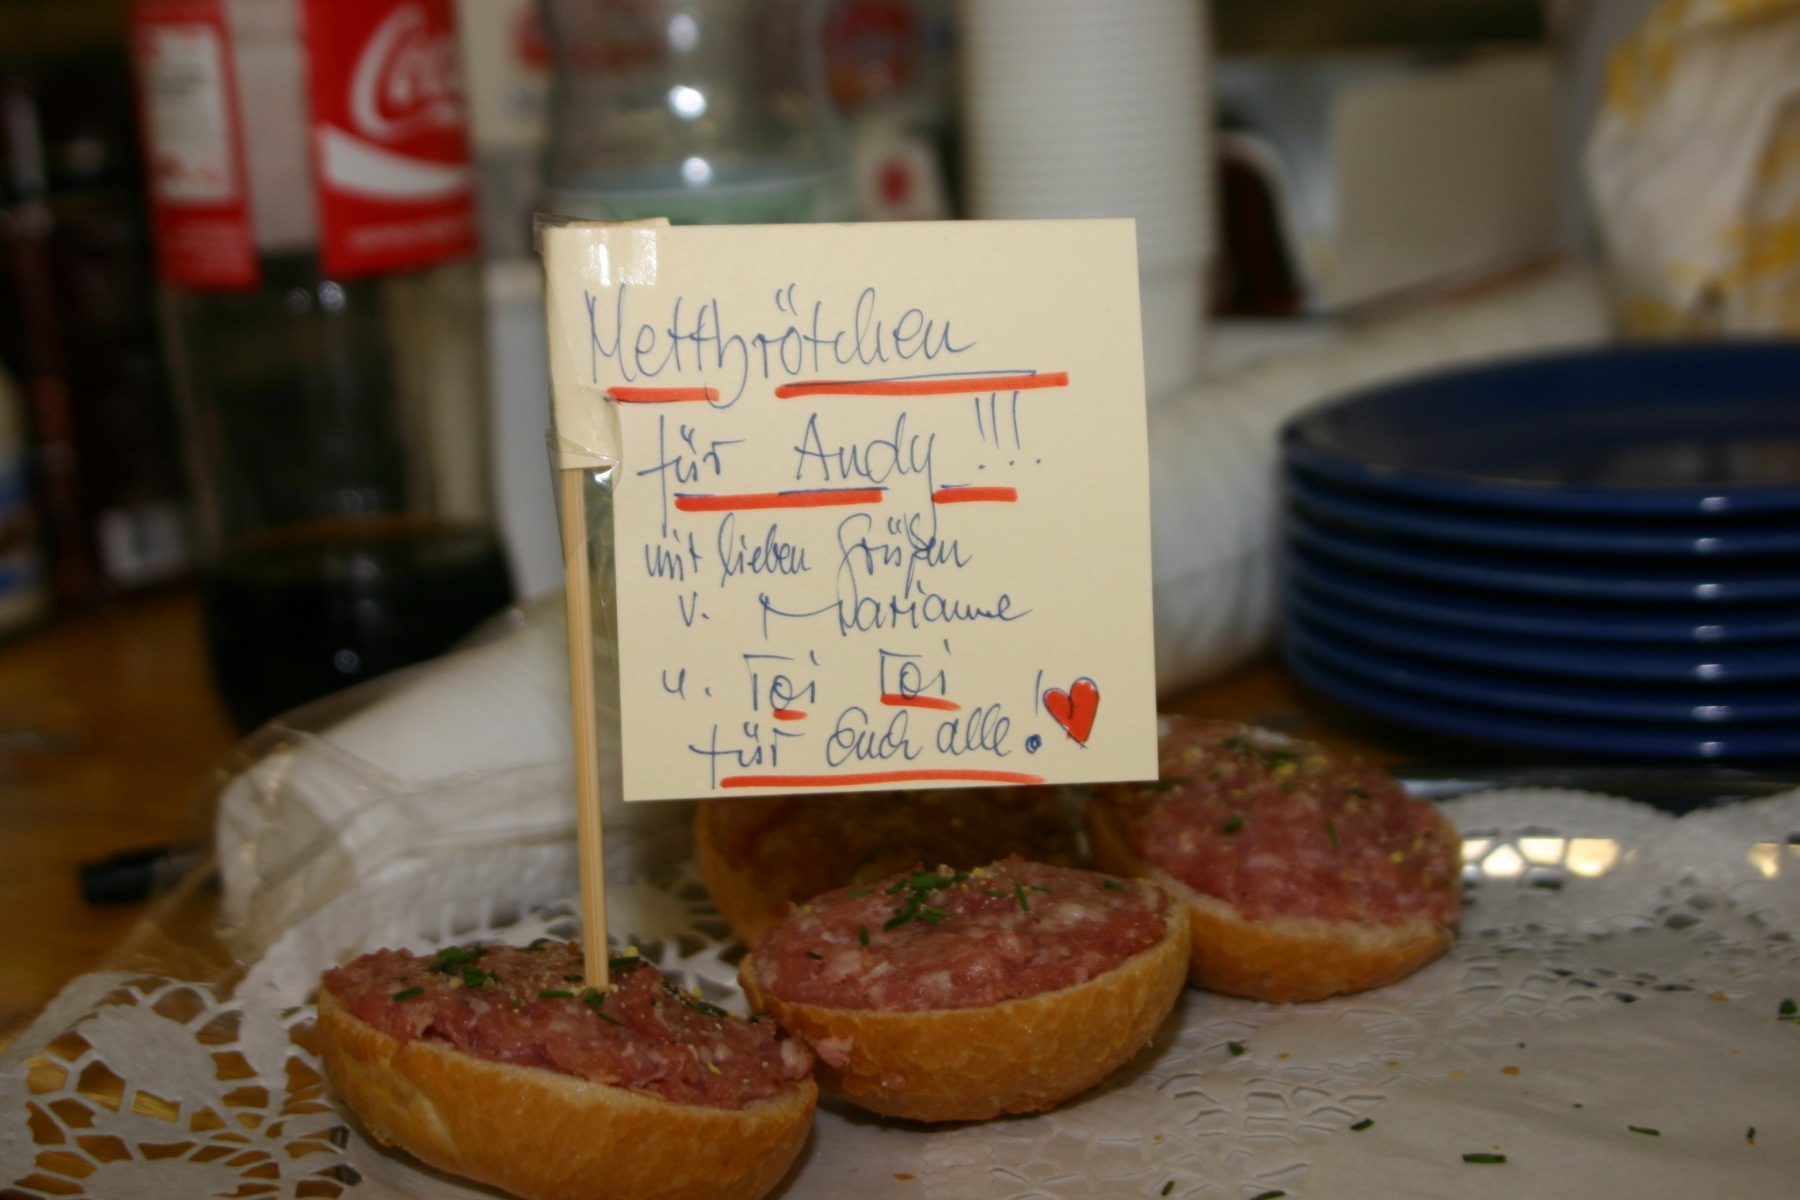 Coca
Mettbrötchen
für Andy !!!
mit lieben Grüßen
v. Marianne
u. Toi Toi
für Euch alle!